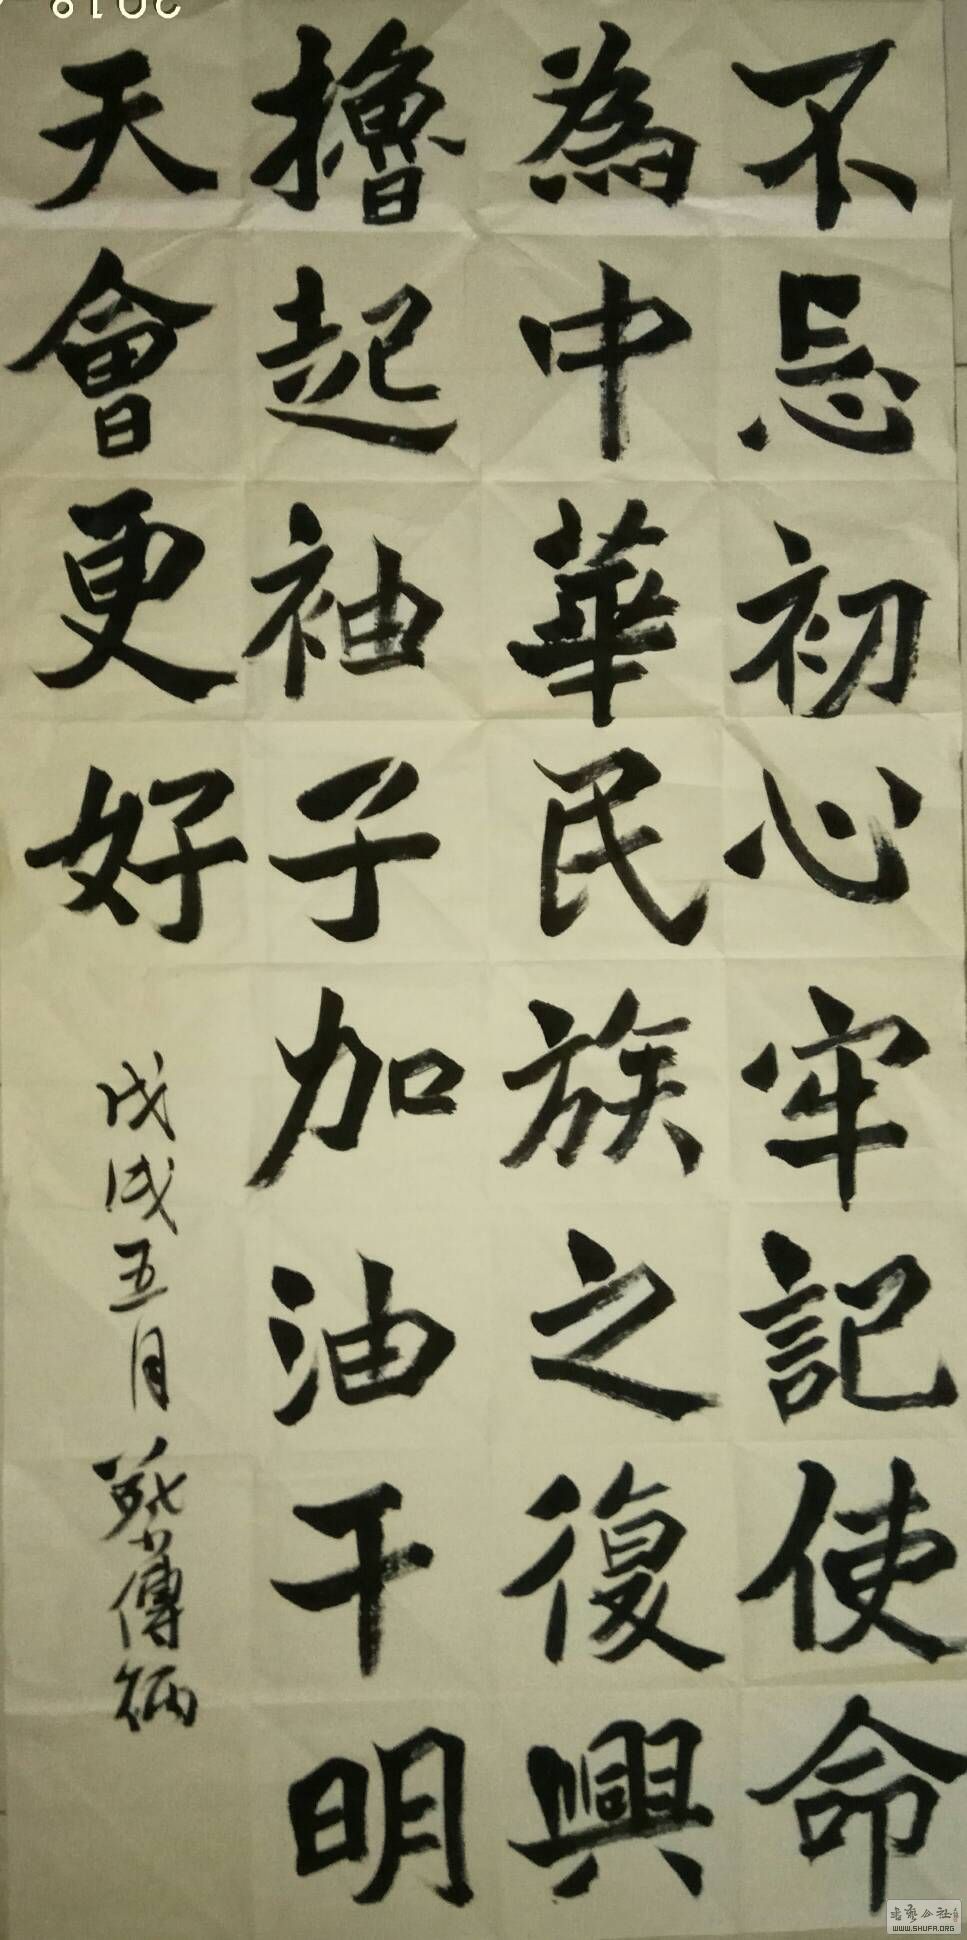 不忘初心牢記使命
為中華民族之復興
擼起袖子加油干明
天會更好
戊戌五月
2018
WWW.SHUFA.ORG